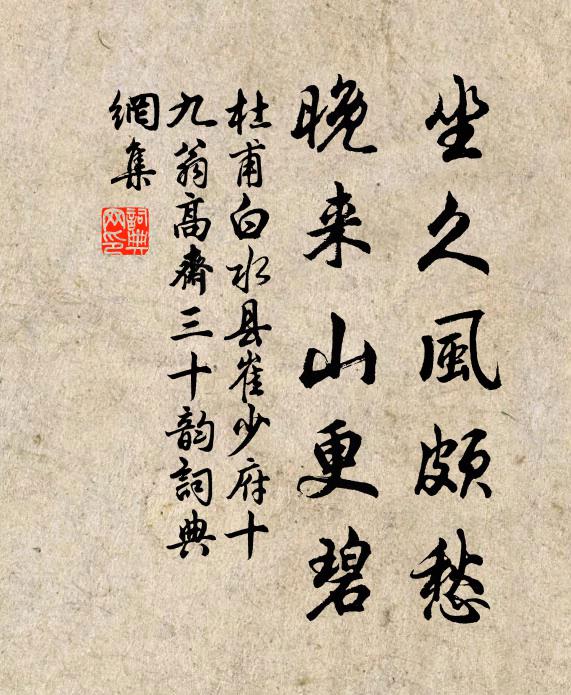 坐久風頗愁
晚来山更碧
杜甫白水县崔少府十
九翁高齋三十韵詞典
網集
詞典
网印